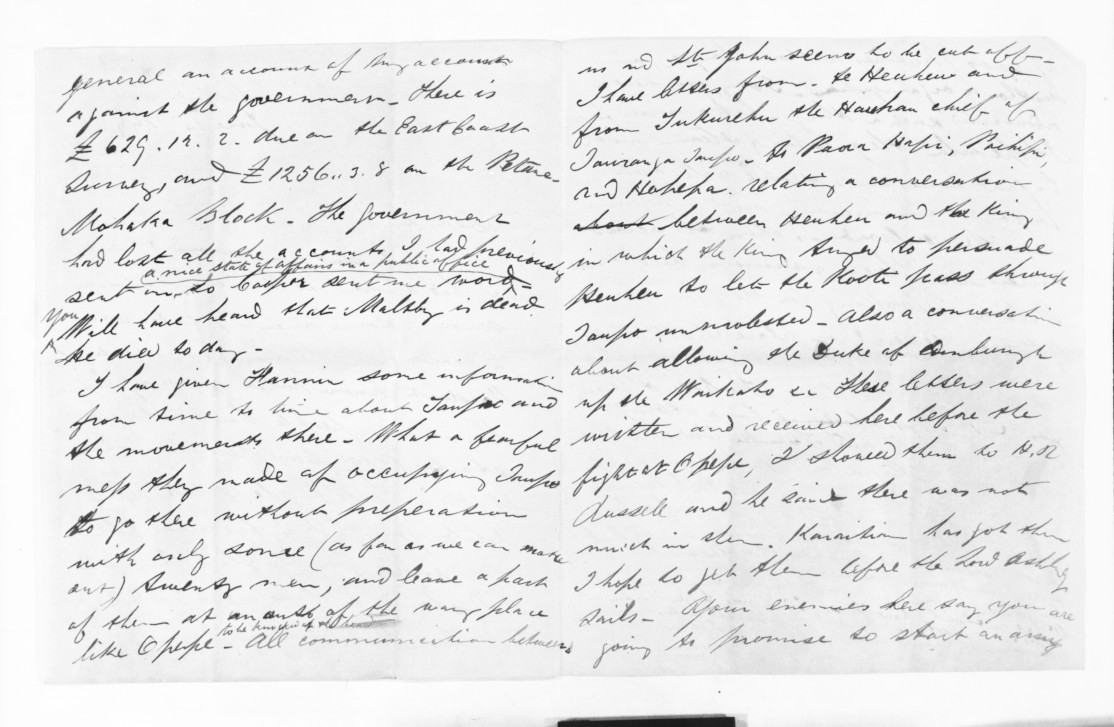 general an account of my accounts
against the government - There is
£629.12.2. due on the East Coast
Survey, and £1256..3.8 on the Petane
Mohaka Block - The Government
had lost all the accounts I had previously
a nice state of affairs in a public office
sent in, so Cooper sent me word -
You
Will have heard that Maltby is dead
he died to day -
I have given Hannin some information
from time to time about Taupo and
the movements there - What a fearful
mess they made of occupying Taupo
to go there without preperation
with only some (as far as we can make
out) twenty men, and leave a part
of them at an out of the way place
to be knocked on the head
like Opepe - All communication between
us and St John seems to be cut off -
I have letters from Te Heuheu and
from Tukurehu the Hauhau chief of
Tauranga Taupo - to Paora Hapi, Poihipi,
and Hohepa. relating a conversation
about between Heuheu and the King
in which the King tryed to persuade
Heuheu to let Te Kooti pass through
Taupo unmolested - Also a conversation
about allowing the Duke of Edinburgh
up the Waikato &c These letters were
written and received here before the
fight at Opepe, I showed them to H.R
Russell and he said there was not
much in them. Karaitiana has got them
I hope to get them before the Lord Ashley
sails - Your enemies here say you are
going to promise to start an army